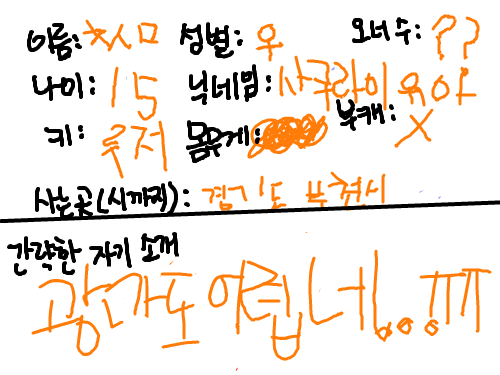 이름: ㅊㅅㅁ 성별: 우 오너수: ??
나이: 15 닉네임: 사쿠라이 유야
키: 루저 몸무게: 부캐: X
사는곳(시까지): 경기도 부천시
간략한 자기 소개
광가도 어렵네...ㅠㅠ